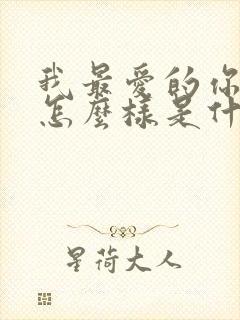 我最愛的你
怎麼樣是什
星荷大人